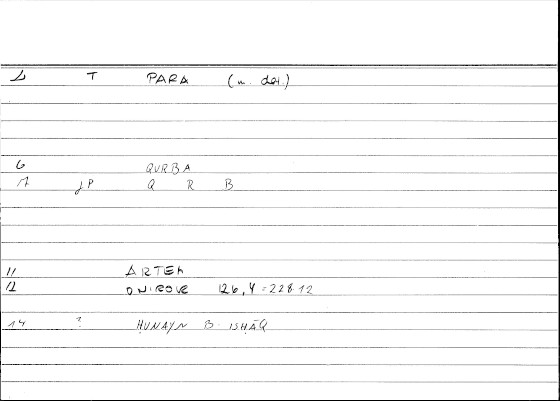 4 T PARA (n. det.)
6 QURBA
7 JP Q R B
11 ARTEM
12 ONIROCR 126,4 = 228 12
14 ? ḤUNAYN B. ISḤĀQ